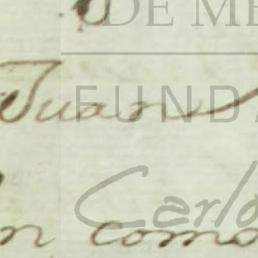 DE ME
Juan
FUNDA
Carlo
n como